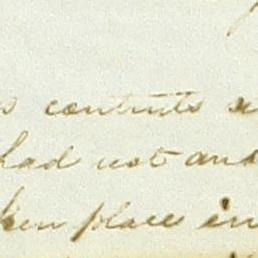 contents
had not and
place in